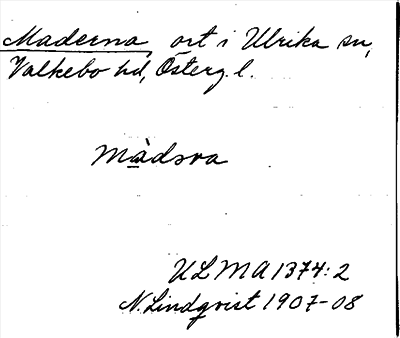 Maderna, ort i Ulrika sn,
Valkebo hd, Österg. l.
màdsra
ULMA 1374:2
N. Lindqvist 1907-08